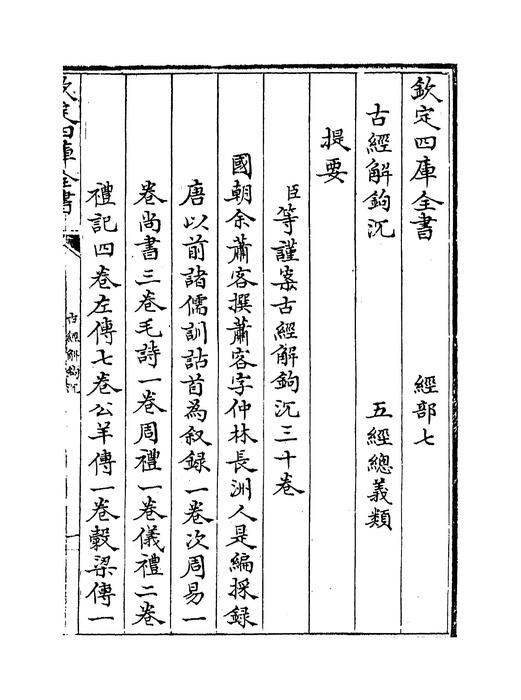 欽定四庫全書　經部七
古經解鉤沉　五經總義類
提要
臣等謹案古經解鉤沉三十卷
國朝余蕭客撰蕭客字仲林長洲人是編採録
唐以前諸儒訓詁首為叙録一卷次周易一
卷尚書三卷毛詩一卷周禮一卷儀禮二卷
禮記四卷左傳七卷公羊傳一卷穀梁傳一
欽定四庫全書
古經解鉤沉
一